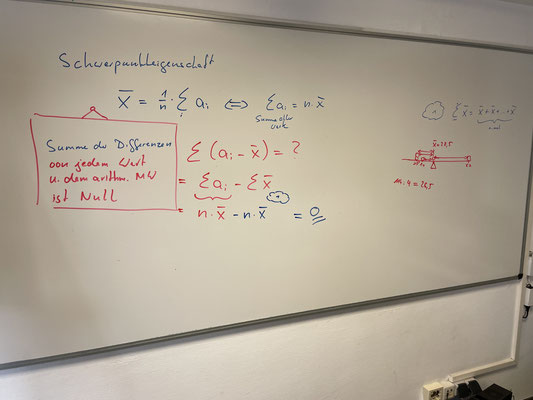 Schwerpunkteigenschaft
x̄ = 1/n · Σ aᵢ ⟺ Σ aᵢ = n · x̄
Summe aller
Werte
Summe der Differenzen
von jedem Wert
u. dem arithm. MW
ist Null
Σ (aᵢ - x̄) = ?
= Σ aᵢ - Σ x̄
= n · x̄ - n · x̄ = 0
Σ x̄ = x̄ + x̄ + ... + x̄
n-mal